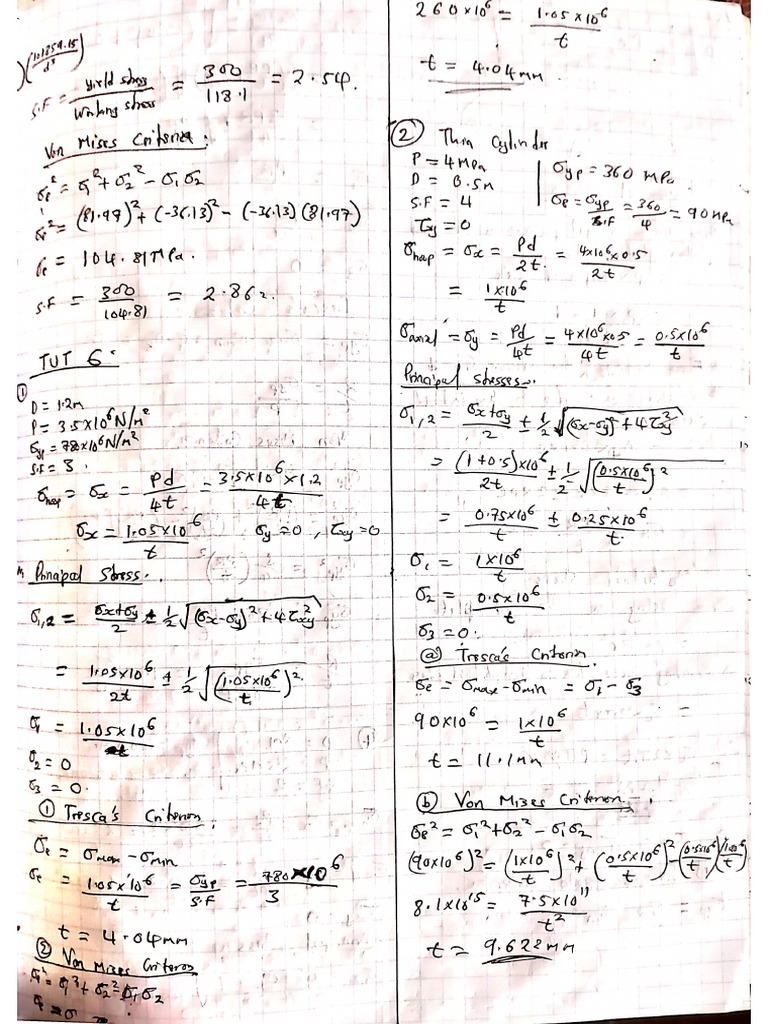 )(101859.15/d³)
S.F = yield stress/working stress = 300/118.1 = 2.54.
Von Mises Criteria.
σe² = σ1² + σ2² - σ1σ2
σe² = (81.97)² + (-36.13)² - (-36.13)(81.97)
σe = 104.81 MPa.
S.F = 300/104.81 = 2.862
TUT 6
①
D = 1.2m
P = 3.5×10⁶ N/m²
σyp = 780×10⁶ N/m²
S.F = 3.
σhop = σx = Pd/4t = 3.5×10⁶×1.2/4t
σx = 1.05×10⁶/t σy = 0, τxy = 0
Principal Stress.
σ1,2 = σx+σy/2 ± 1/2 √(σx-σy)² + 4τxy²
= 1.05×10⁶/2t ± 1/2 √(1.05×10⁶/t)²
σ1 = 1.05×10⁶/t
σ2 = 0
σ3 = 0.
① Tresca's Criterion
σe = σmax - σmin
σe = 1.05×10⁶/t = σyp/S.F = 780×10⁶/3
t = 4.04mm
② Von Mises Criterion
σe² = σ1² + σ2² - σ1σ2
260×10⁶ = 1.05×10⁶/t
t = 4.04mm.
② Thin Cylinder
P = 4MPa
D = 0.5m
S.F = 4
τxy = 0
σyp = 360 MPa
σe = σyp/S.F = 360/4 = 90MPa
σhop = σx = Pd/2t = 4×10⁶×0.5/2t
= 1×10⁶/t
σaxial = σy = Pd/4t = 4×10⁶×0.5/4t = 0.5×10⁶/t
Principal stresses.
σ1,2 = σx+σy/2 ± 1/2 √(σx-σy)² + 4τxy²
= (1+0.5)×10⁶/2t ± 1/2 √(0.5×10⁶/t)²
= 0.75×10⁶/t ± 0.25×10⁶/t.
σ1 = 1×10⁶/t
σ2 = 0.5×10⁶/t
σ3 = 0.
ⓐ Tresca's Criterion.
σe = σmax - σmin = σ1 - σ3
90×10⁶ = 1×10⁶/t
t = 11.1mm
ⓑ Von Mises Criterion.
σe² = σ1² + σ2² - σ1σ2
(90×10⁶)² = (1×10⁶/t)² + (0.5×10⁶/t)² - (0.5×10⁶/t)(1×10⁶/t)
8.1×10¹⁵ = 7.5×10¹¹/t²
t = 9.622mm